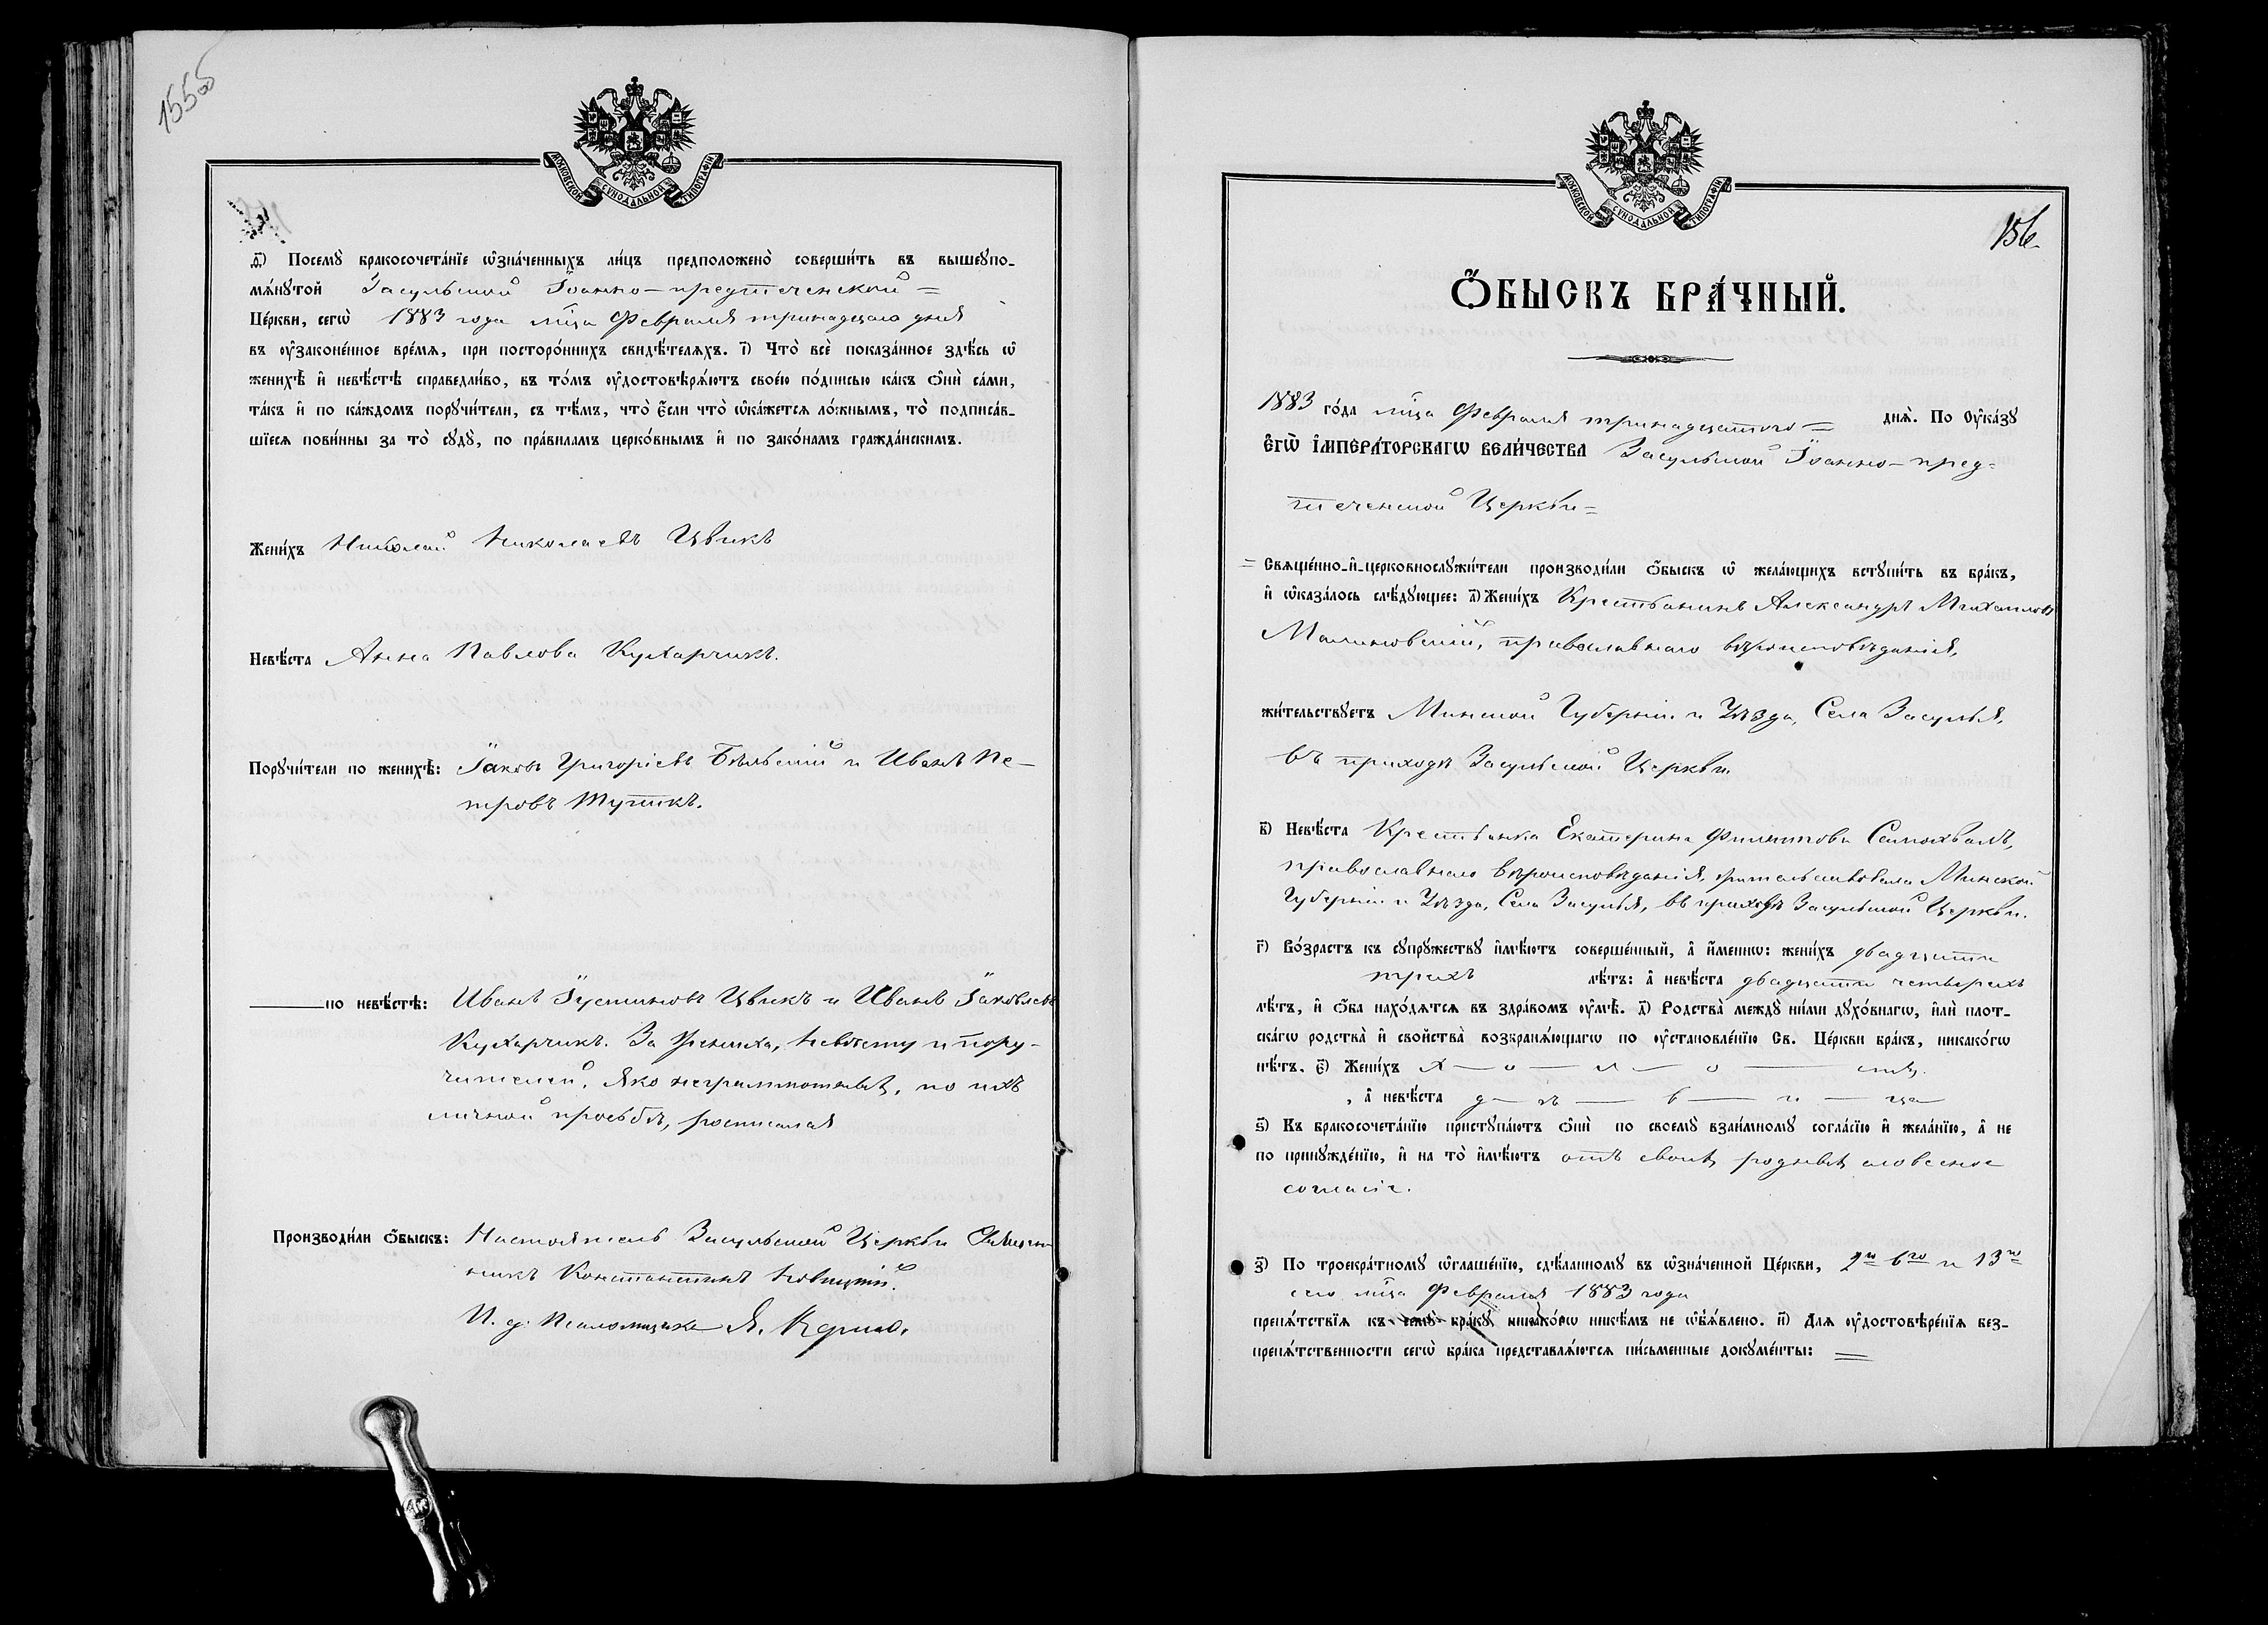 155об
МОСКОВСКОЙ СѴНОДАЛЬНОЙ ТИПОГРАФІИ
д҃і) Посемꙋ̀ бракосочета́нїе ѡ҆зна́ченныхъ ли́цъ предположено̀ соверши́ть въ вышеꙋпо-
мѧ́нꙋтой Засульской Іоанно-предтеченской =
Це́ркви, сегѡ̀ 1883 года мца Февраля тринадцаго дня
въ ᲂу҆законе́нное вре́мѧ, при посторо́ннихъ свидѣ́телѧхъ. і҃) Что̀ всѐ показа́нное здѣ́сь ѡ҆
женихѣ̀ и҆ невѣ́стѣ справедли́во, въ то́мъ ᲂу҆достовѣрѧ́ютъ свое́ю по́дписью ка́къ ѻ҆нѝ са́ми,
та́къ и҆ по ка́ждомъ порꙋчи́тели, съ тѣ́мъ, что̀ є҆́сли что̀ ѡ҆ка́жетсѧ ло́жнымъ, то̀ подписа́в-
шїесѧ пови́нны за то̀ сꙋдꙋ̀, по пра́виламъ церко́внымъ и҆ по зако́намъ гражда́нскимъ.
Жени́хъ Николай Николаевъ Цвикъ
Невѣ́ста Анна Павлова Кухарчикъ.
Порꙋчи́тели по женихѣ̀: Іаковъ Григоріевъ Бѣльскій и Иванъ Пе-
тровъ Тупикъ.
по невѣ́стѣ: Иванъ Іустиновъ Цвикъ и Иванъ Іаковлевъ
Кухарчикъ. За жениха, невѣсту и пору-
чителей, яко неграмотныхъ, по ихъ
личной просьбѣ, росписался
Производи́ли ѻ҆́быскъ: Настоятель Засульской Церкви Священ-
никъ Константинъ Новицкій.
И. д. Псаломщика Я.
МОСКОВСКОЙ СѴНОДАЛЬНОЙ ТИПОГРАФІИ
156.
Ѻ҆́БЫСКЪ БРА́ЧНЫЙ.
1883 го́да мца Февраля тринадцатого = днѧ̀. По Оу҆ка́зꙋ
Є҆ГѠ̀ І҆МПЕРА́ТОРСКАГѠ ВЕЛИ́ЧЕСТВА Засульской Іоанно-пред-
теченской Церкви =
Свѧще́нно-и҆-церковнослꙋжи́тели производи́ли ѻ҆́быскъ ѡ҆ жела́ющихъ встꙋпи́ть въ бра́къ,
и҆ ѡ҆каза́лось слѣ́дꙋющее: а҃) Жени́хъ Крестьянинъ Александръ Михаиловъ
Малиновскій, православнаго вѣроисповѣданія,
жи́тельствꙋетъ Минской Губерніи и Уѣзда, Села Засулья,
въ приходѣ Засульской Церкви
в҃) Невѣ́ста Крестьянка Екатерина Филиппова Самохвалъ,
православнаго вѣроисповѣданія, жительствовала Минской
Губерніи и Уѣзда, Села Засулья, въ приходѣ Засульской Церкви.
г҃) Во́зрастъ къ сꙋпрꙋ́жествꙋ и҆мѣ́ютъ соверше́нный, а҆ и҆́меннѡ: жени́хъ двадцати
трехъ лѣ́тъ: а҆ невѣ́ста двадцати четырехъ
лѣ́тъ, и҆ ѻ҆́ба нахо́дѧтсѧ въ здра́вомъ ᲂу҆мѣ̀. д҃) Родства̀ междꙋ̀ ни́ми дꙋхо́внагѡ, и҆лѝ плот-
ска́гѡ родства̀ и҆ сво́йства возбранѧ́ющагѡ по ᲂу҆становле́нїю Св. Це́ркви бра́къ, никако́гѡ
нѣ́тъ. є҃) Жени́хъ х — о — л — о — стъ.
, а҆ невѣ́ста д — ѣ — в — и — ца
ѕ҃) Къ бракосочета́нїю пристꙋпа́ютъ ѻ҆нѝ по своемꙋ̀ взаи́мномꙋ согла́сїю и҆ жела́нїю, а҆ не
по принꙋжде́нїю, и҆ на то̀ и҆мѣ́ютъ отъ своихъ родныхъ словесное
согласіе.
з҃) По троекра́тномꙋ ѡ҆глаше́нїю, сдѣ́ланномꙋ въ ѡ҆зна́ченной Це́ркви, 2го 6го и 13го
сего мца Февраля 1883 года
препѧ́тствїѧ къ семꙋ̀ бра́кꙋ никако́гѡ никѣ́мъ не ѡ҆б̾ѧ́влено. и҃) Длѧ ᲂу҆достовѣре́нїѧ без-
препѧ́тственности сегѡ̀ бра́ка представлѧ́ютсѧ пи́сьменные докꙋме́нты: =